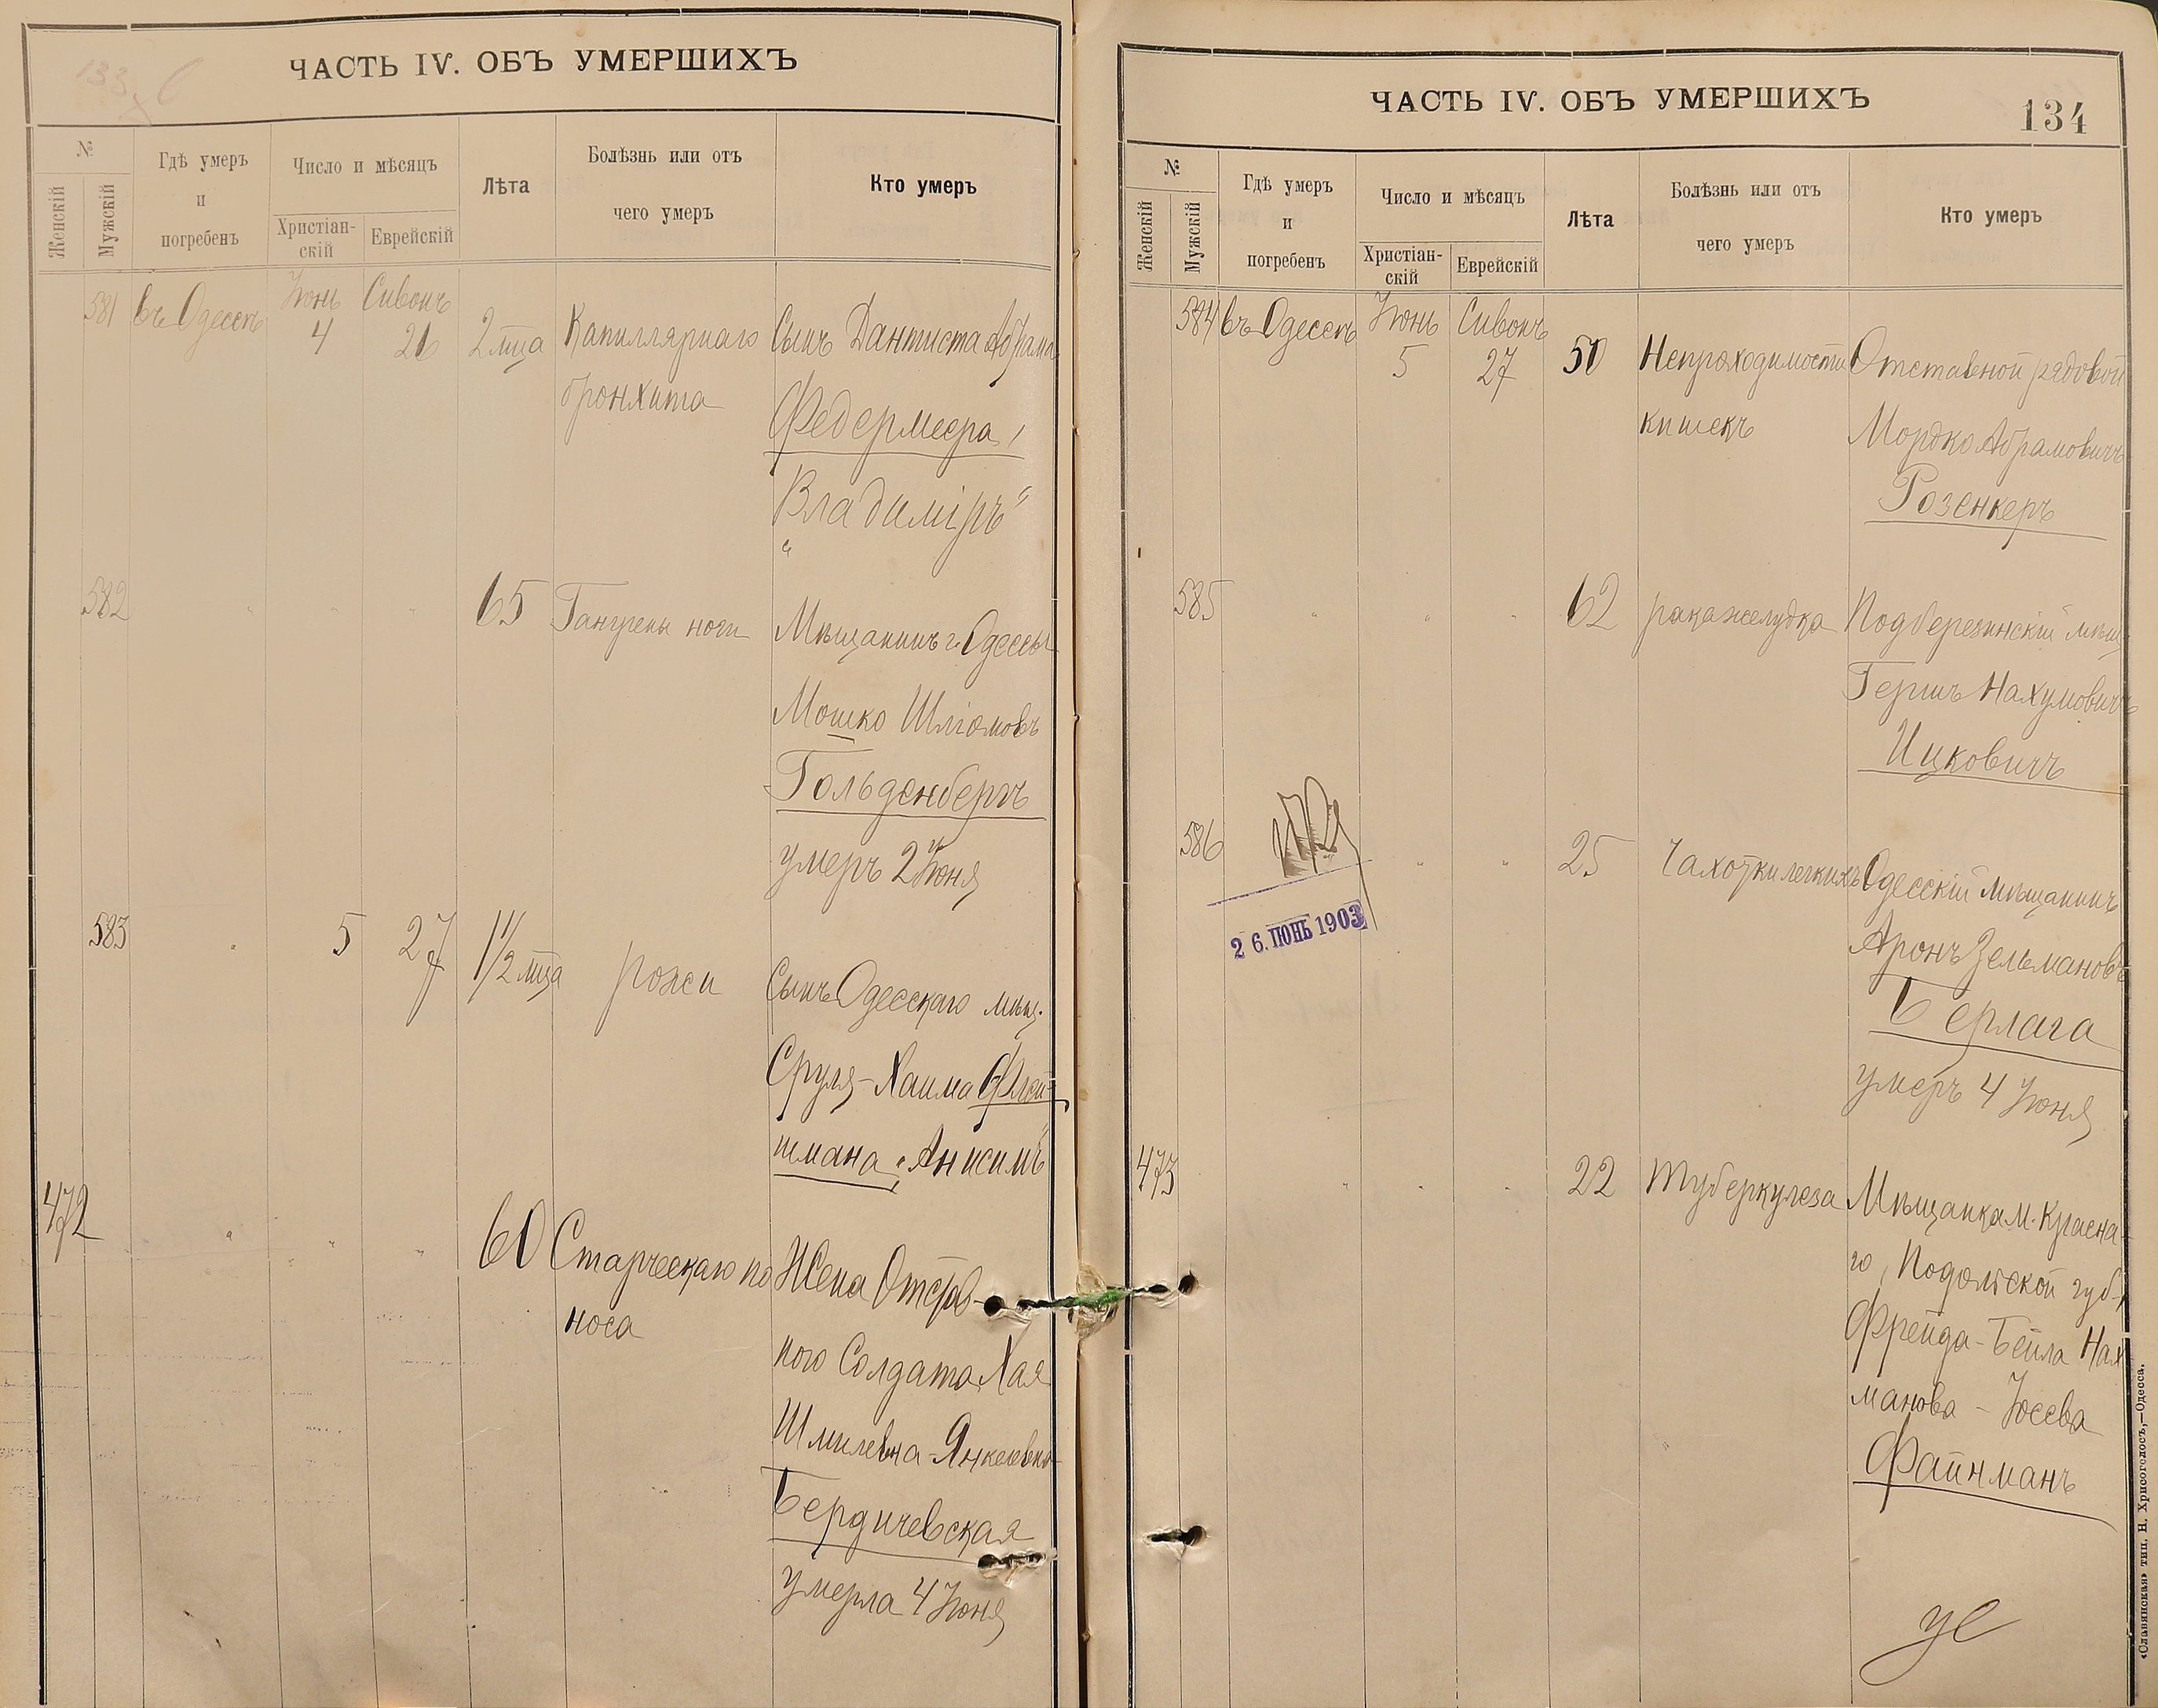 133
ЧАСТЬ IV. ОБЪ УМЕРШИХЪ
№
Женскій
Мужскій
Гдѣ умеръ
и
погребенъ
Число и мѣсяцъ
Христіан-
скій
Еврейскій
Лѣта
Болѣзнь или отъ
чего умеръ
Кто умеръ
581 въ Одессѣ Іюнь 4 Сивонъ 26 2 мца Капиллярнаго Сынъ Дантиста Абрама
бронхита Федермеера,
„Владиміръ“
582 " " " 65 Гангрены ноги Мѣщанинъ г. Одессы
Мошко Шліомовъ
Гольденбергъ
умеръ 2 Іюня
583 " 5 27 1 1/2 мца рожи Сынъ Одесскаго мѣщ.
Сруля-Хаима Флей-
шмана, „Анисимъ“
472 " " " 60 Старческаго по Жена Отстав-
носа ного Солдата Хая
Шмилевна-Янкелевна
Бердичевская
умерла 4 Іюня
ЧАСТЬ IV. ОБЪ УМЕРШИХЪ
134
№
Женскій
Мужскій
Гдѣ умеръ
и
погребенъ
Число и мѣсяцъ
Христіан-
скій
Еврейскій
Лѣта
Болѣзнь или отъ
чего умеръ
Кто умеръ
584 въ Одессѣ Іюнь 5 Сивонъ 27 50 Непроходимости Отставной рядовой
кишекъ Мордко Абрамовичъ
Розенкеръ
585 " " " 62 рака желудка Подберезинскій мѣщ
Гершъ Нахумовичъ
Ицковичъ
586 " " 25 Чахотки легкихъ Одесскій мѣщанинъ
26. ІЮНЬ 1903
Аронъ Зельмановъ
Берлага
умеръ 4 Іюня
473 " " " 22 Туберкулеза Мѣщанка м. Красна-
го, Подольской губ.,
Фрейда-Бейла Нах
манова-Іосева
Файнманъ
«Славянская» тип. Н. Хрисогелосъ,—Одесса.